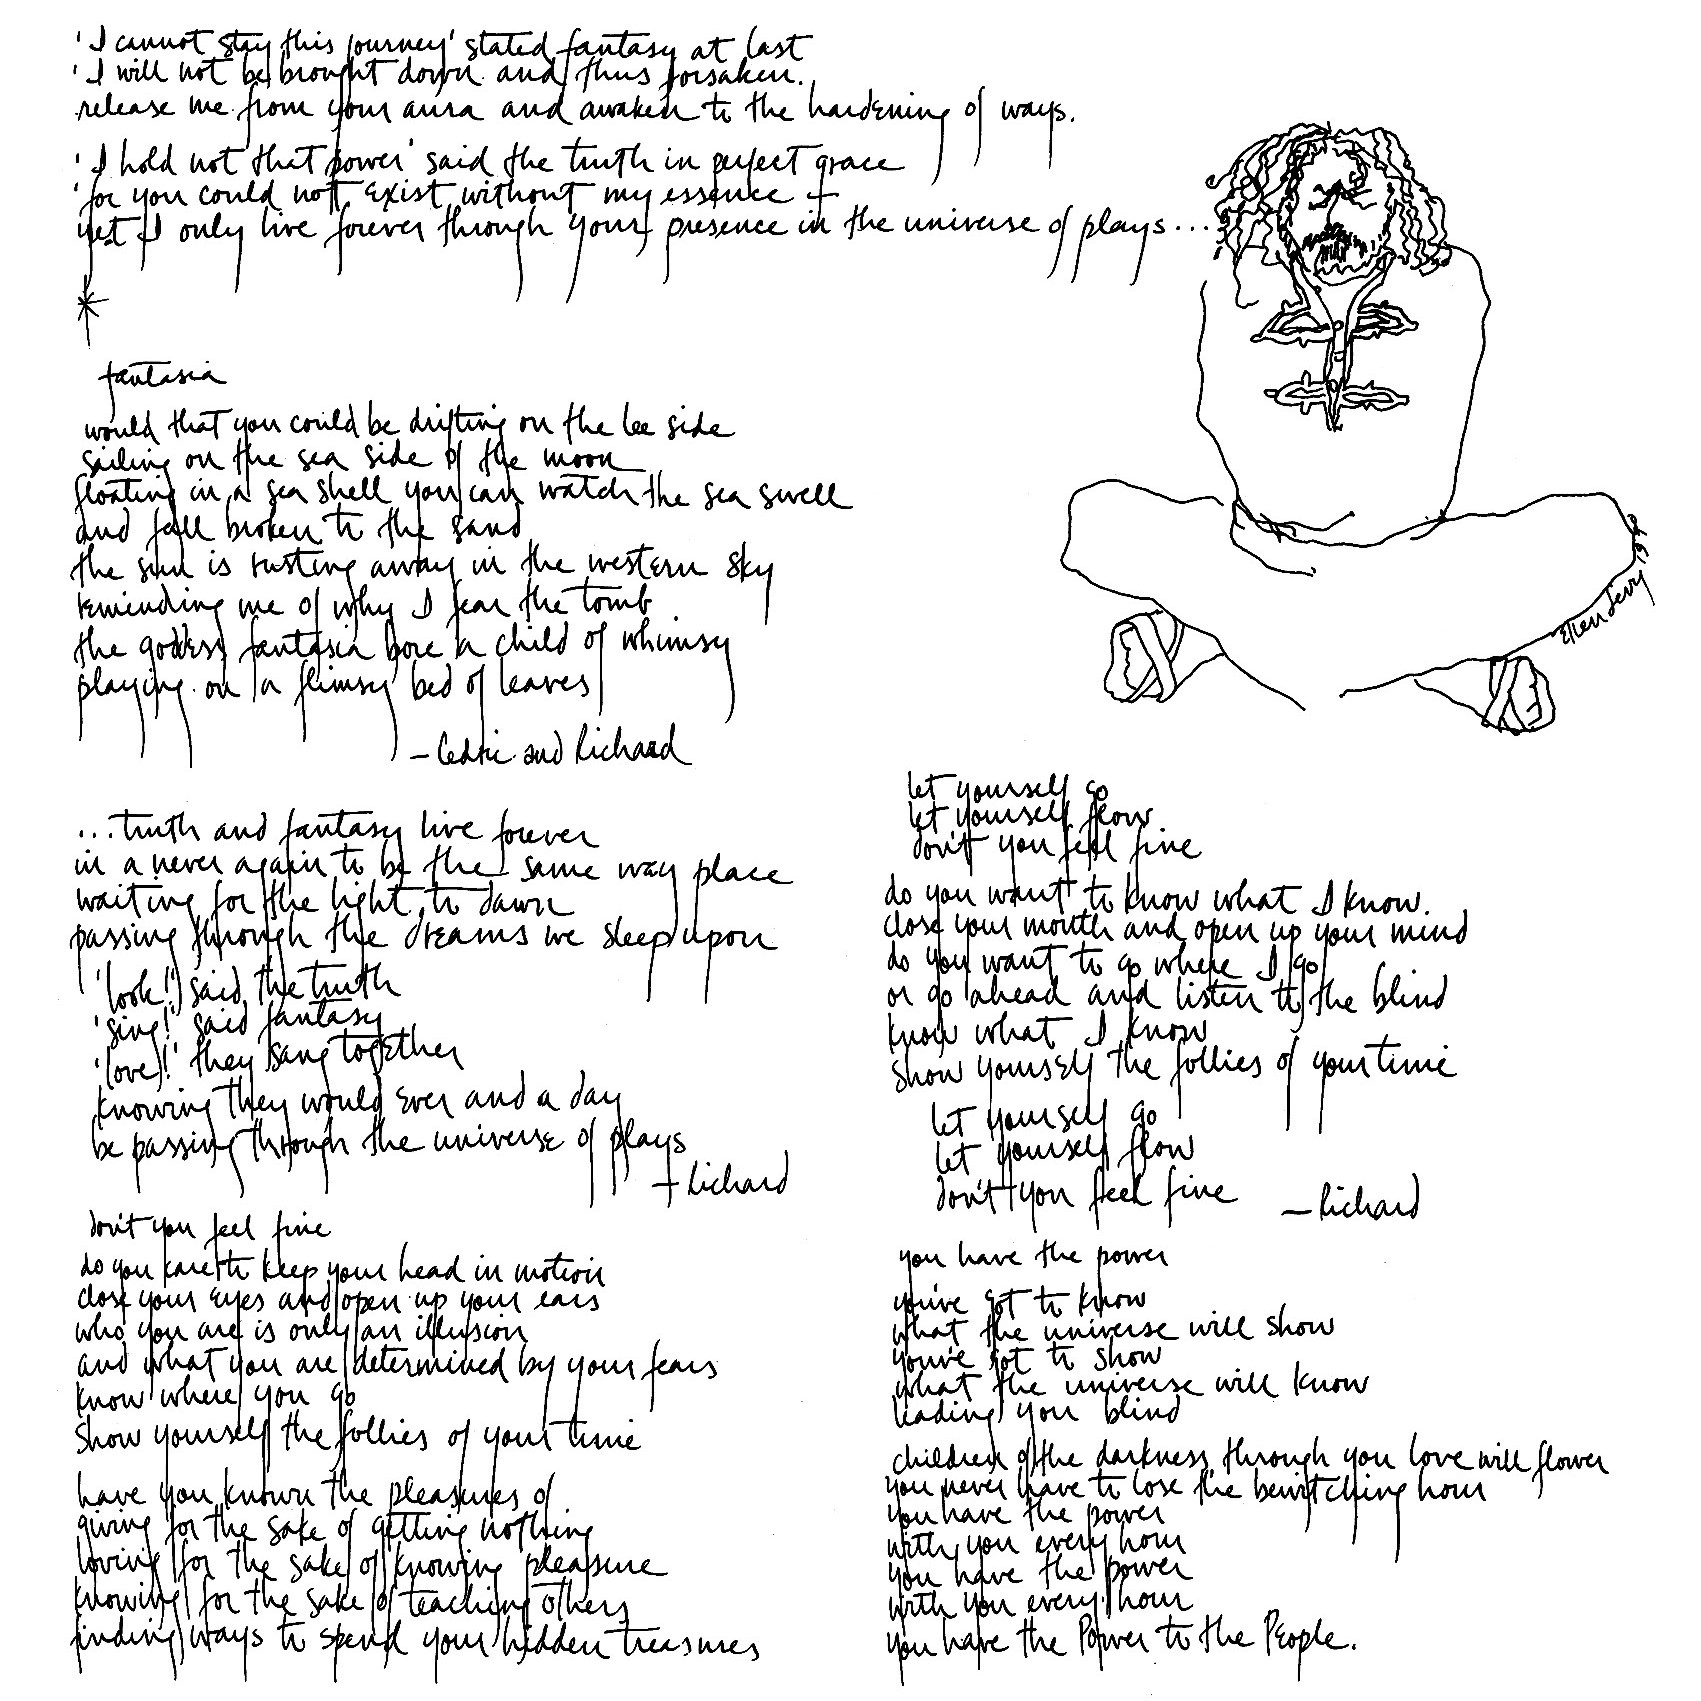 'I cannot stay this journey' stated fantasy at last
'I will not be brought down and thus forsaken.
release me from your aura and awaken to the hardening of ways.
'I hold not that power' said the truth in perfect grace
'for you could not exist without my essence +
yet I only live forever through your presence in the universe of plays...'
*
fantasia
would that you could be drifting on the lee side
sailing on the sea side of the moon
floating in a sea shell you can watch the sea swell
and fall broken to the sand
the sun is rusting away in the western sky
reminding me of why I fear the tomb
the goddess fantasia bore a child of whimsy
playing on a flimsy bed of leaves
- Cedric and Richard
...truth and fantasy live forever
in a never again to be the same way place
waiting for the light to dawn
passing through the dreams we sleep upon
'look!' said the truth
'sing!' said fantasy
'love!' they sang together
knowing they would ever and a day
be passing through the universe of plays
+ Richard
don't you feel fine
do you care to keep your head in motion
close your eyes and open up your ears
who you are is only an illusion
and what you are determined by your fears
know where you go
show yourself the follies of your time
have you known the pleasures of
giving for the sake of getting nothing
loving for the sake of knowing pleasure
knowing for the sake of teaching others
finding ways to spend your hidden treasures
Ellen Levy
let yourself go
let yourself flow
don't you feel fine
do you want to know what I know.
close your mouth and open up your mind
do you want to go where I go
or go ahead and listen to the blind
know what I know
show yourself the follies of your time
let yourself go
let yourself flow
don't you feel fine
- Richard
you have the power
you've got to know
what the universe will show
you've got to show
what the universe will know
leading you blind
children of the darkness through you love will flower
you never have to lose the bewitching hour
you have the power
with you every hour
you have the power
with you every hour
you have the Power to the People.